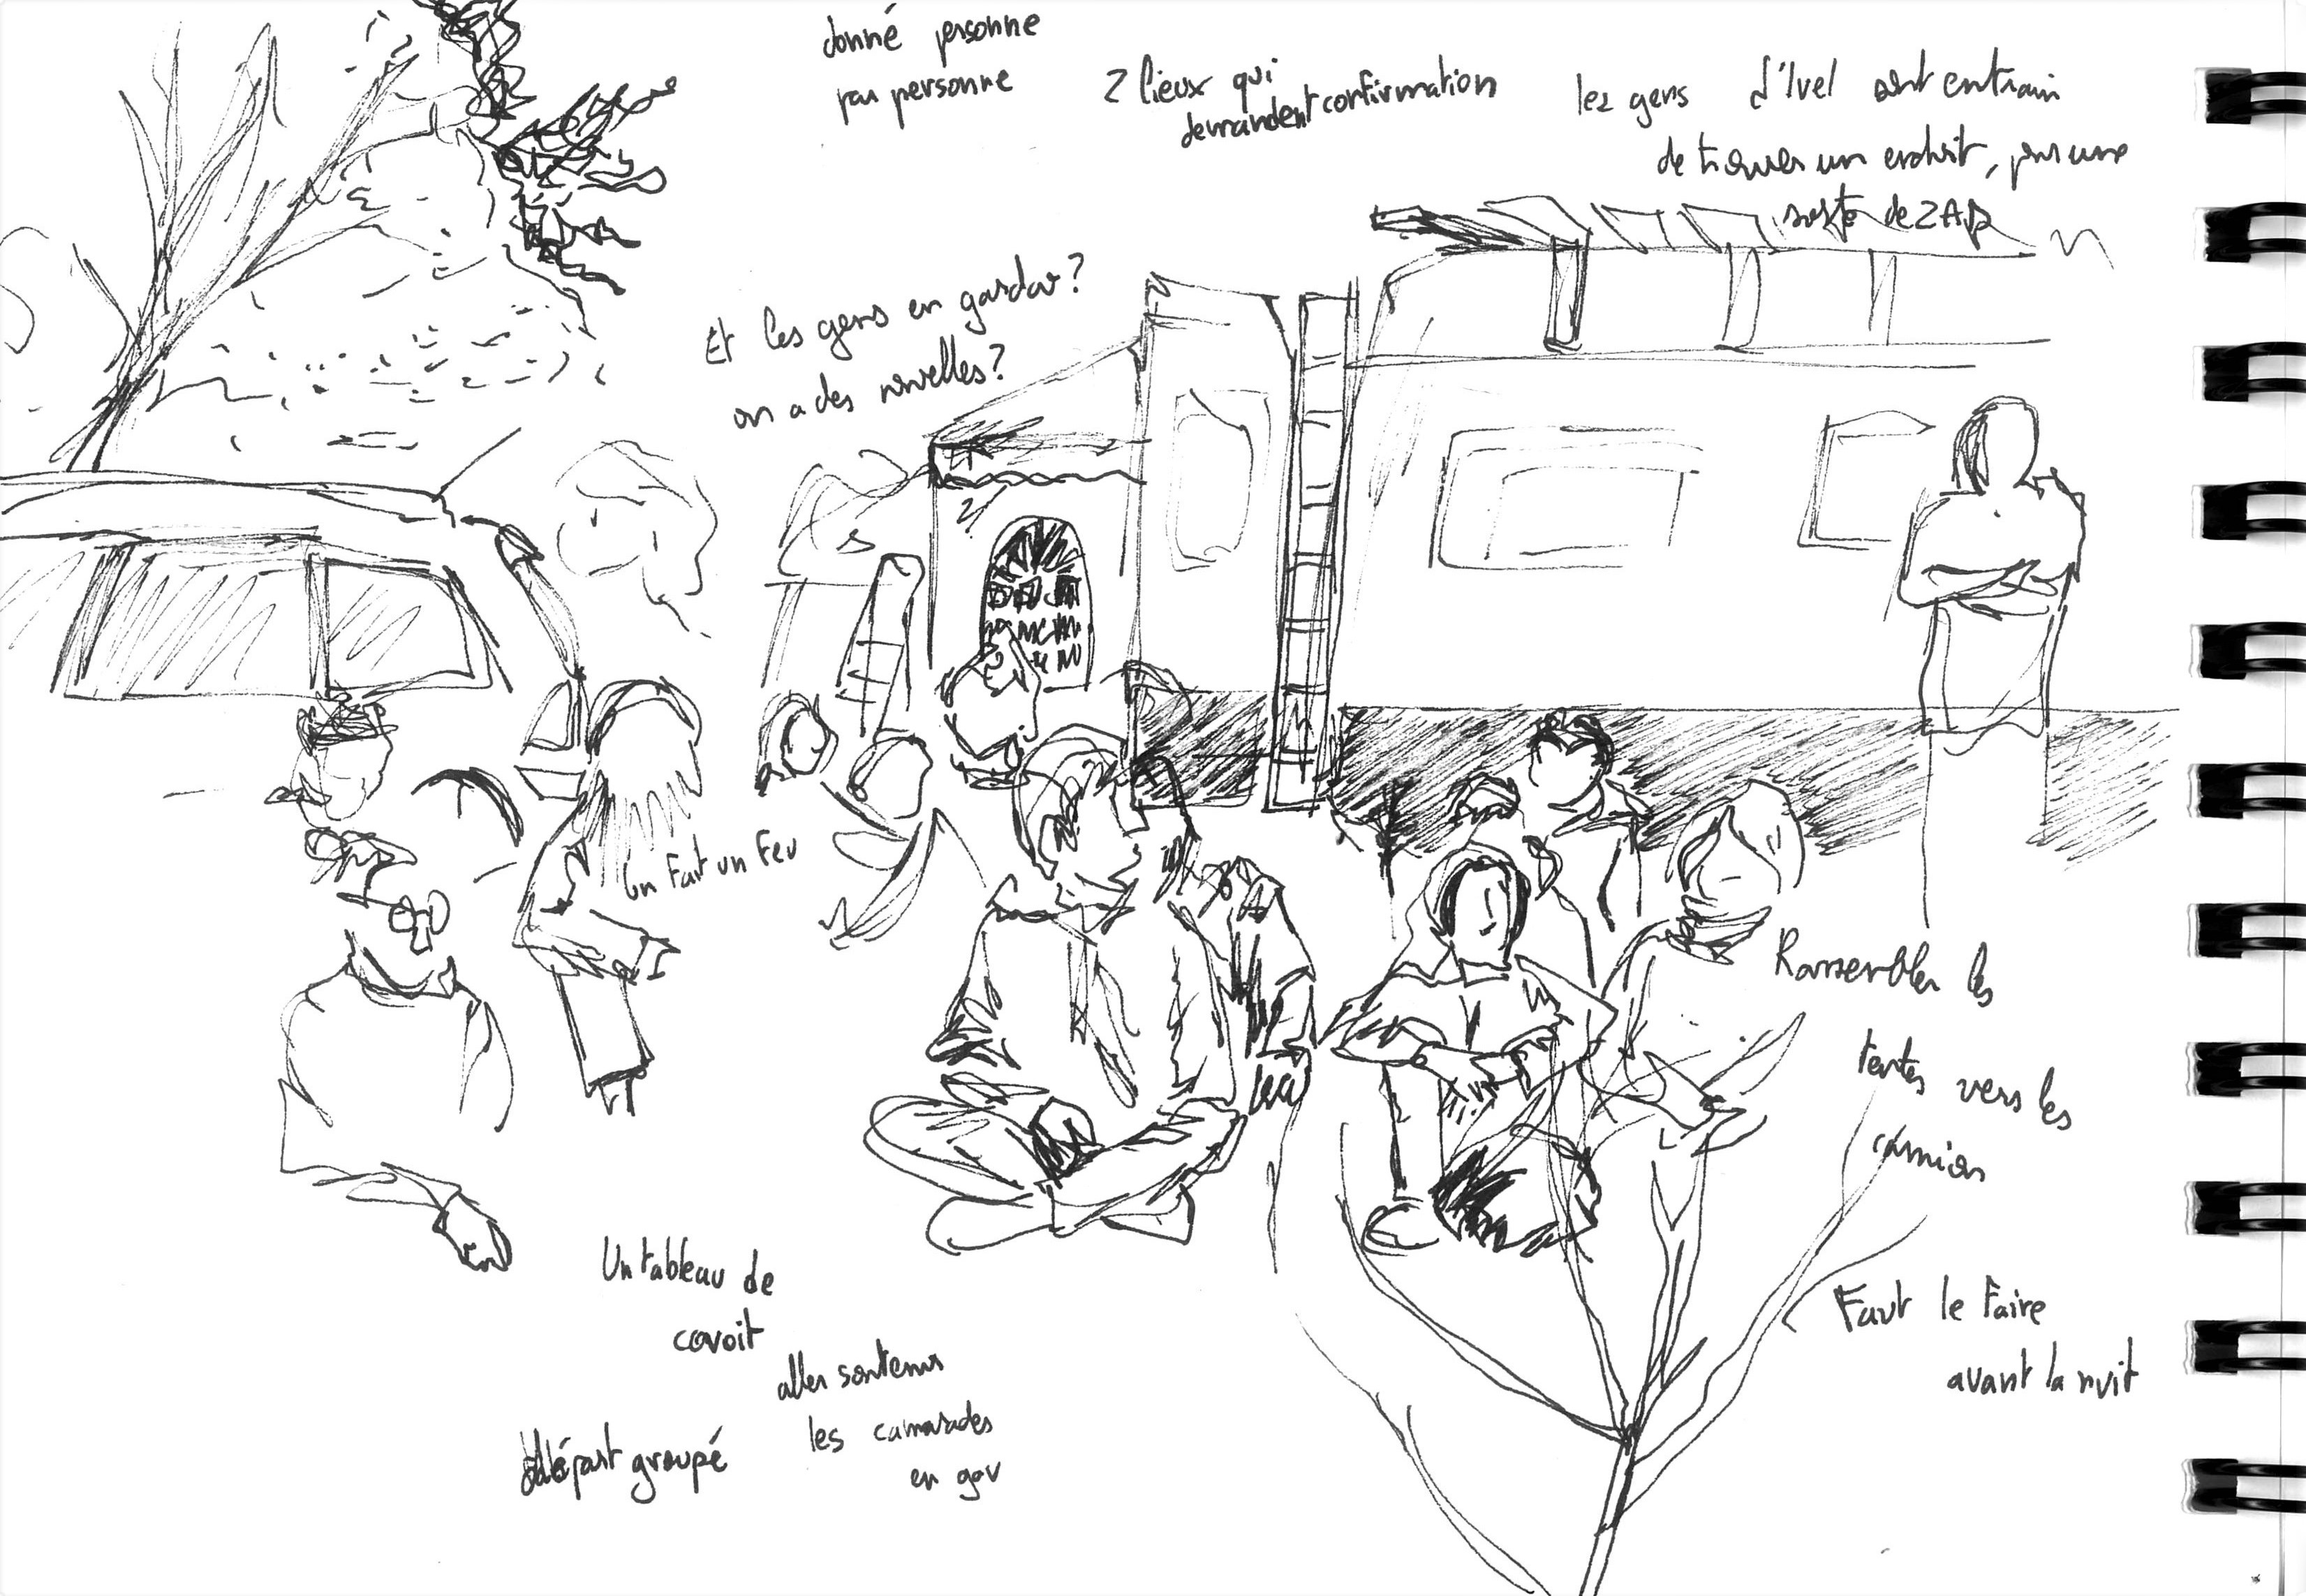 donné personne
par personne
2 lieux qui
demandent confirmation
les gens d'Ivel sont entrain
de trouver un endroit, pour une
sorte de ZAD
Et les gens en gardav?
on a des nouvelles?
on fait un feu
Rassembler les
tentes vers les
camions
Faut le faire
avant la nuit
Un tableau de
covoit
aller soutenir
les camarades
en gav
départ groupé